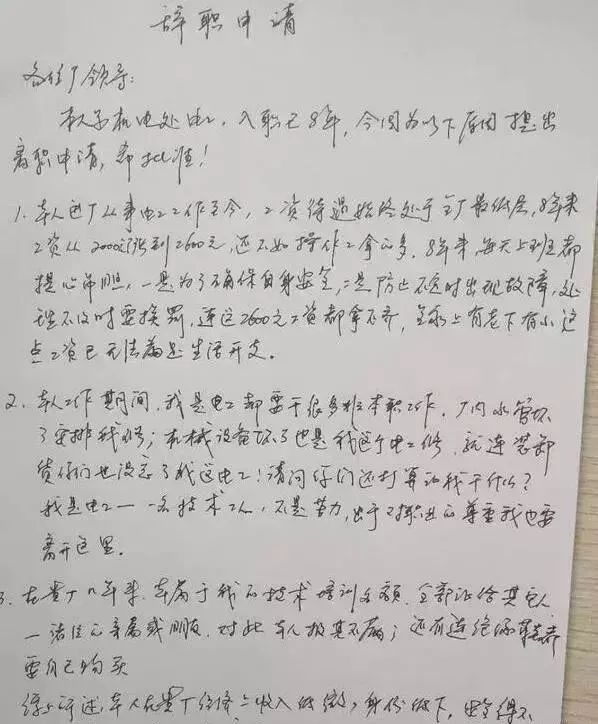 辞职申请
各位厂领导:
本人系机电处电工,入职已8年,今因为以下原因提出
离职申请,希批准!
1. 本人进厂从事电工工作至今,工资待遇始终处于全厂最低层,8年来
工资从2000元涨到2600元,还不如操作工拿的多。8年来,每天上班都
提心吊胆,一是为了确保自身安全,二是防止不定时出现故障,处
理不及时要挨罚,连这2600元工资都拿不齐,全家上有老下有小这
点工资已无法满足生活开支。
2. 本人工作期间,我是电工却要干很多非本职工作,厂内水管坏
了安排我修;机械设备坏了也是我这个电工修,就连装卸
货你们也没忘了我这电工!请问你们还打算让我干什么?
我是电工——一名技术工人,不是苦力,出于对职业的尊重我也要
离开这里。
3. 在贵厂八年来,本属于我的技术培训名额,全部让给其它人
一诸位的亲属或朋友,对此本人极其不满;还有连绝缘
要自己购买
综上所述,本人在贵厂经济上收入低微,身份低下,